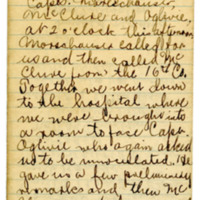 Capt. Morschauser,
McClure and Ogilvie,
at 2 o'clock this afternoon
Morschauser called for
us and then called Mc
Clure from the 16th Co.
Together we went down
to the hospital where
we were brought into
a room to face Capt.
Ogilvie who again asked
us to be innoculated. He
gave us a few preliminary
remarks and then Mc